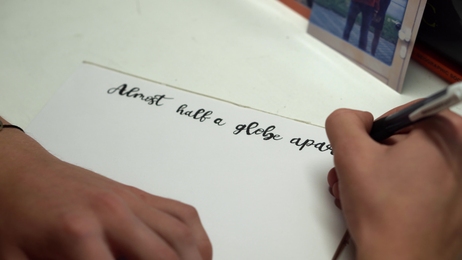 Almost half a globe apar